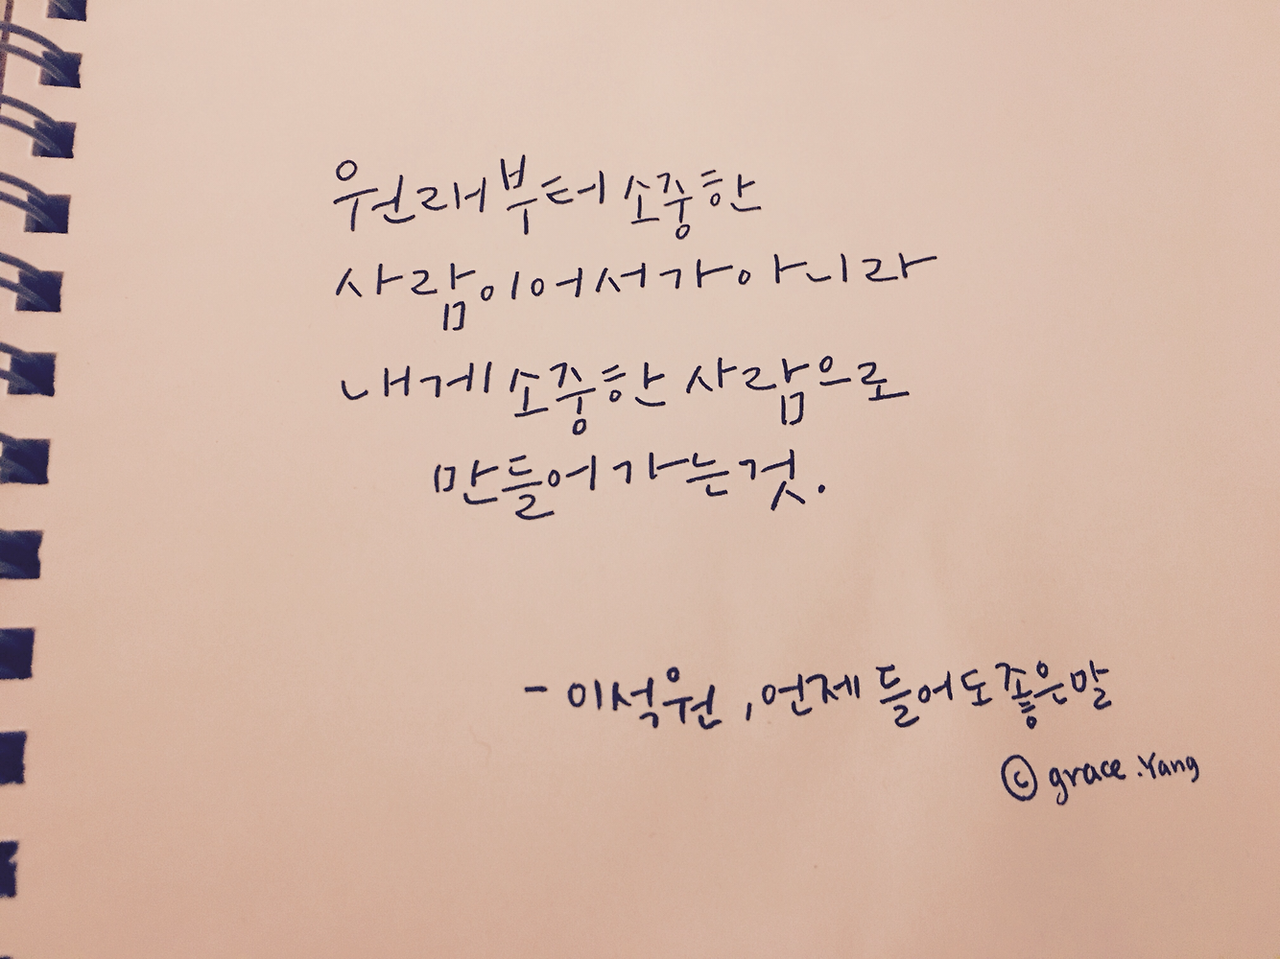 원래부터 소중한
사람이어서가 아니라
내게 소중한 사람으로
만들어 가는 것.
- 이석원, 언제 들어도 좋은 말
ⓒ grace.Yang